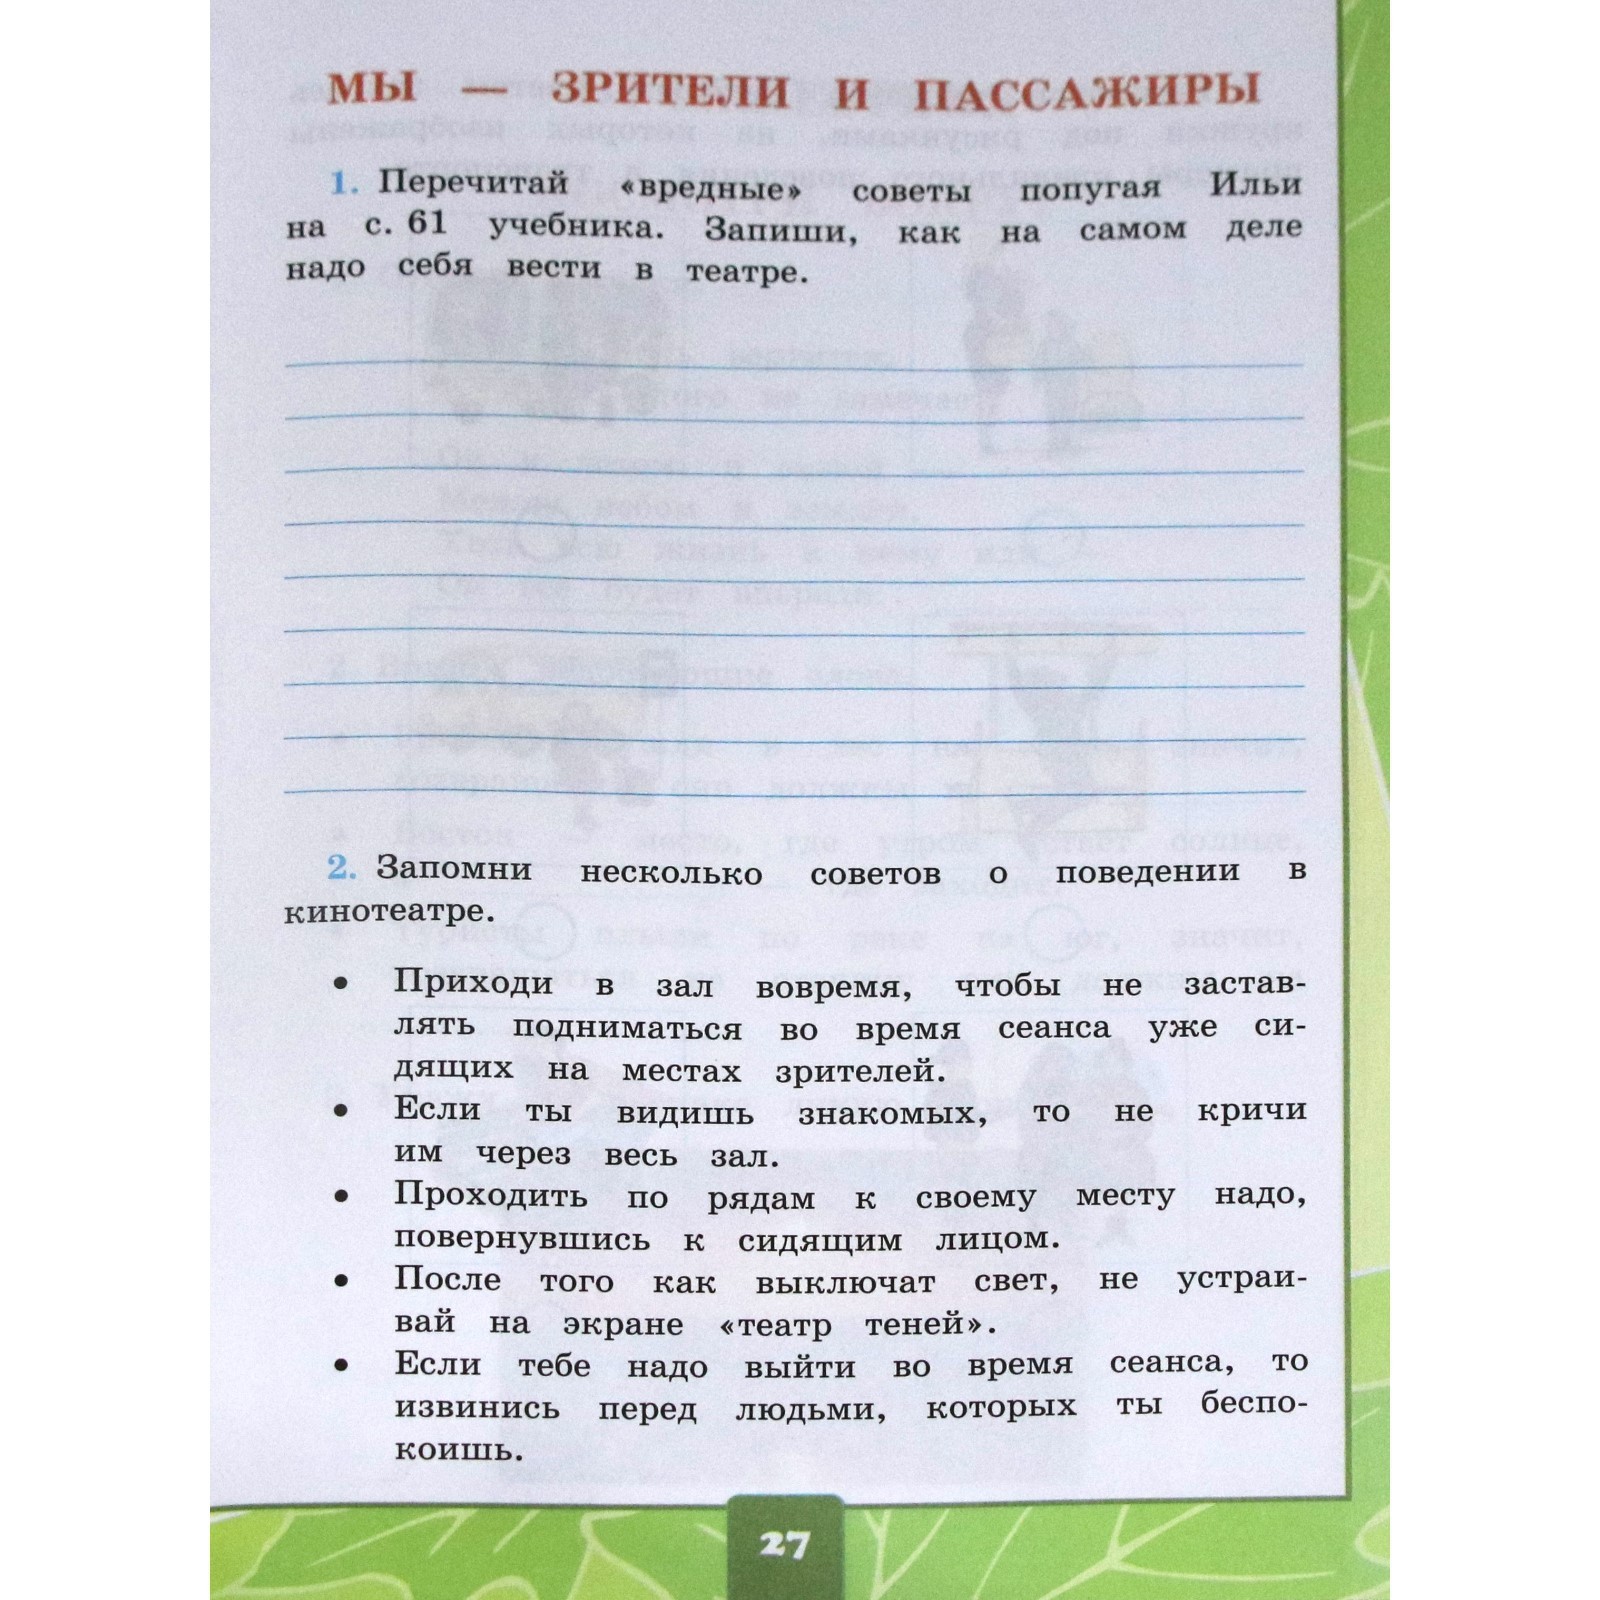 МЫ — ЗРИТЕЛИ И ПАССАЖИРЫ
1. Перечитай «вредные» советы попугая Ильи
на с. 61 учебника. Запиши, как на самом деле
надо себя вести в театре.
2. Запомни несколько советов о поведении в
кинотеатре.
• Приходи в зал вовремя, чтобы не застав-
лять подниматься во время сеанса уже си-
дящих на местах зрителей.
• Если ты видишь знакомых, то не кричи
им через весь зал.
• Проходить по рядам к своему месту надо,
повернувшись к сидящим лицом.
• После того как выключат свет, не устраи-
вай на экране «театр теней».
• Если тебе надо выйти во время сеанса, то
извинись перед людьми, которых ты беспо-
коишь.
27